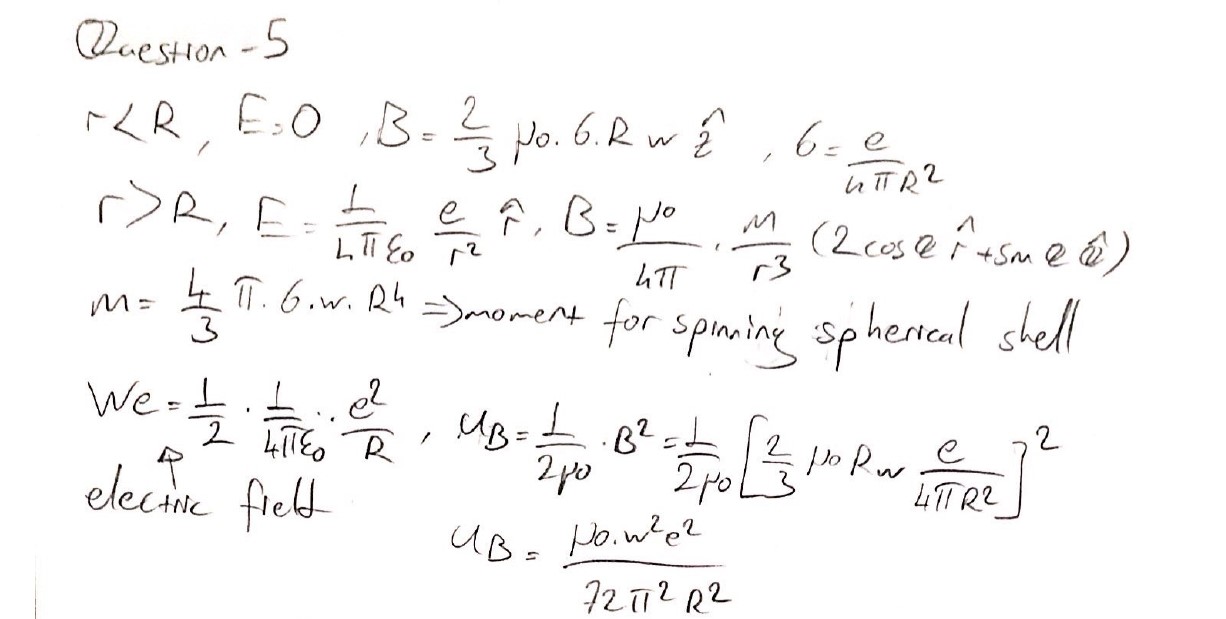 Question - 5
r<R, E=0, B = 2/3 μ0.σ.R w ẑ, σ = e/4πR²
r>R, E = 1/4πε0 e/r² r̂, B = μ0/4π . m/r³ (2cosθ r̂ + sinθ θ̂)
m = 4/3 π.σ.w.R4 => moment for spinning spherical shell
We = 1/2 . 1/4πε0 . e²/R, uB = 1/2μ0 . B² = 1/2μ0 [2/3 μ0 R w e/4πR²]²
electric field
uB = μ0.w²e²/72π²R²